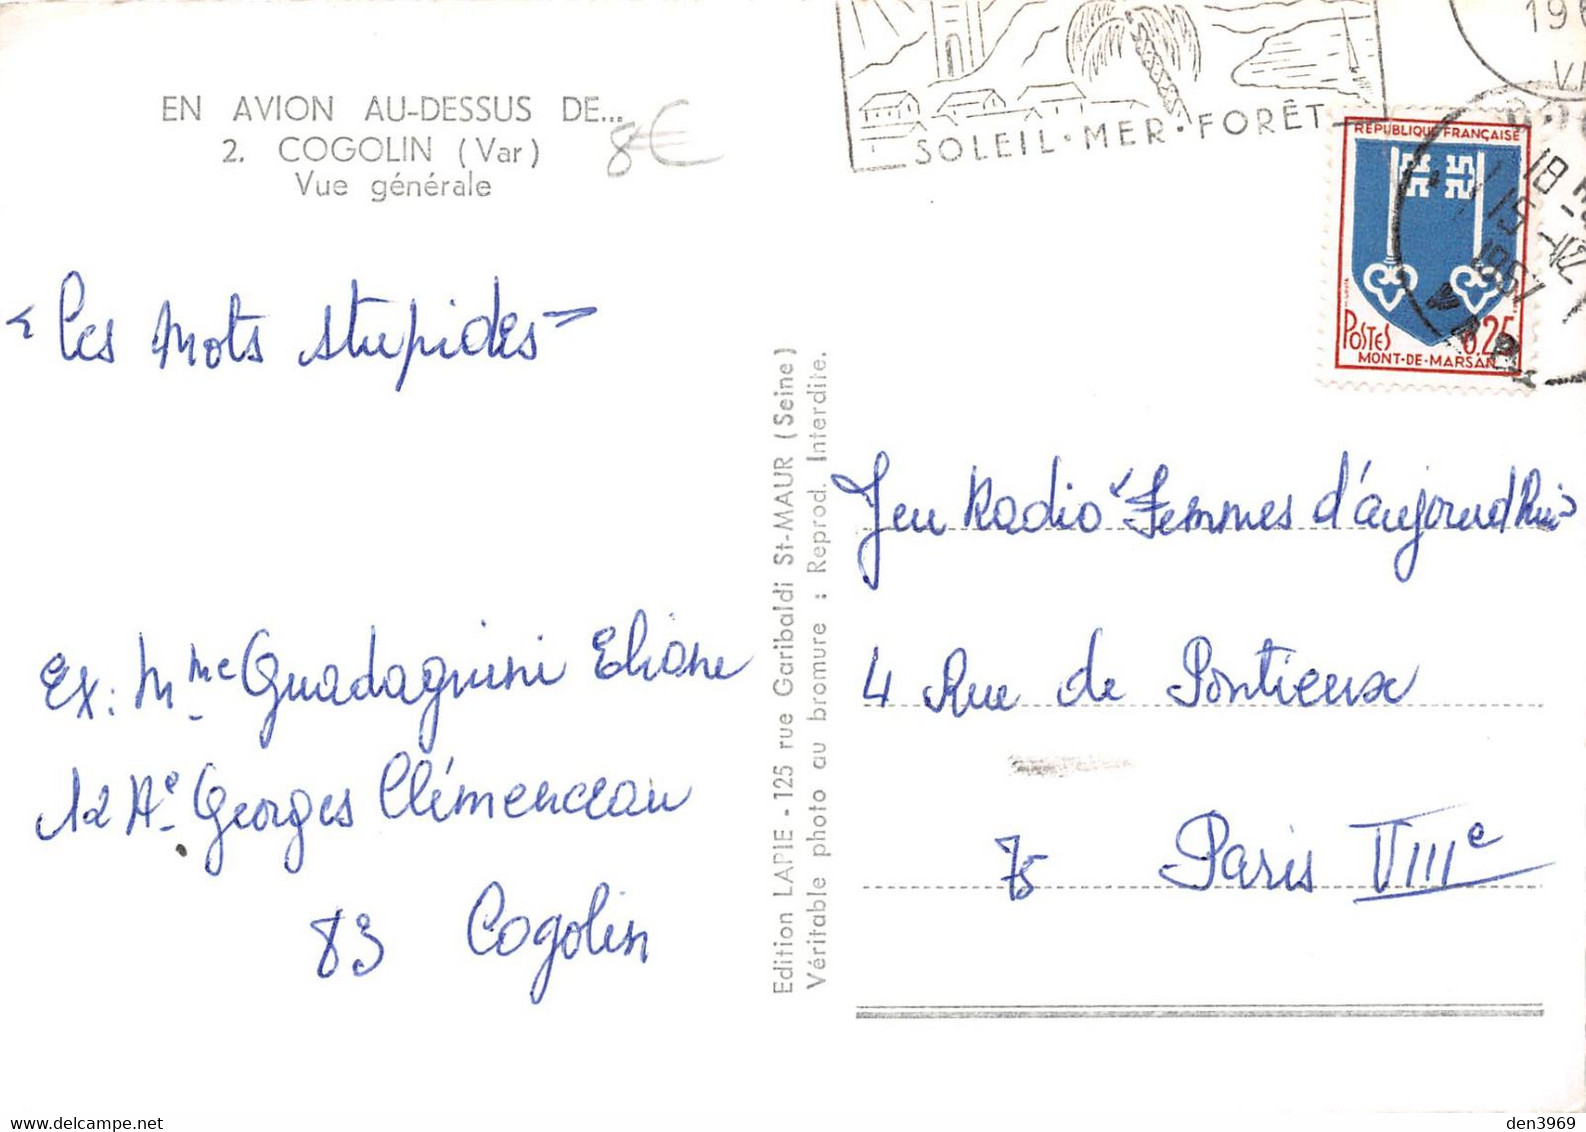 EN AVION AU-DESSUS DE...
2. COGOLIN (Var)
Vue générale
8€
SOLEIL·MER·FORÊT
RÉPUBLIQUE FRANÇAISE
POSTES 0.25
MONT-DE-MARSAN
18 H
15 -12
1967
"Les mots stupides"
Ex: Mme Guadagnini Eliane
12 Ae Georges Clémenceau
83 Cogolin
Edition LAPIE - 125 rue Garibaldi St-MAUR (Seine)
Véritable photo au bromure : Reprod. Interdite.
Jeu Radio "Femmes d'aujourd'hui"
4 Rue de Pontieux
75 Paris VIIIe
den3969